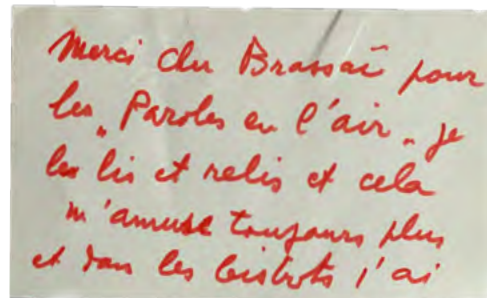 Merci cher Brassaï pour
les „Paroles en l'air„ je
les lis et relis et cela
m'amuse toujours plus
et dans les bistrots j'ai